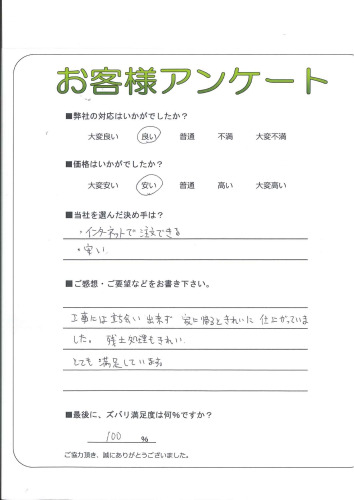 お客様アンケート
■弊社の対応はいかがでしたか?
大変良い 良い 普通 不満 大変不満
■価格はいかがでしたか?
大変安い 安い 普通 高い 大変高い
■当社を選んだ決め手は?
・インターネットで注文できる
・安い
■ご感想・ご要望などをお書き下さい。
工事には立ち会い出来ず 家に帰るときれいに仕上がっていま
した。 残土処理もきれい.
とても満足しています。
■最後に、ズバリ満足度は何%ですか?
100 %
ご協力頂き、誠にありがとうございました。